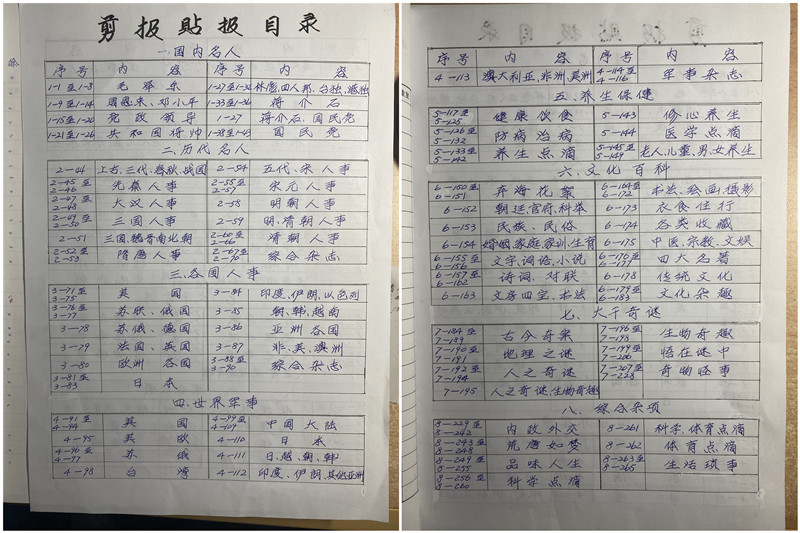 剪报贴报目录
一.国内名人
序号 内容 序号 内容
1-1至1-8 毛泽东 1-27至1-32 林彪,四人邦,台独,藏独
1-9至1-14 周恩来、邓小平 1-33至1-36 蒋介石
1-15至1-20 党政领导 1-27 蒋介石、国民党
1-21至1-26 共和国将帅 1-38至1-43 国民党
二.历代名人
2-44 上古,三代,春秋,战国 2-54 五代、宋人事
2-45至2-46 先秦人事 2-55至2-57 宋元人事
2-47至2-48 大汉人事 2-58 明朝人事
2-49至2-50 三国人事 2-59 明、清朝人事
2-51 三国,魏晋南北朝 2-60至2-66 清朝人事
2-52至2-53 隋唐人事 2-67至2-70 综合杂志
三.各国人事
3-71至3-75 美国 3-84 印度,伊朗,以色列
3-76至3-77 苏联、俄国 3-85 朝、韩,越南
3-78 苏俄、德国 3-86 亚洲各国
3-79 法国、英国 3-87 非、美、澳洲
3-80 欧洲各国 3-88至3-90 综合杂志
3-81至3-83 日本
四.世界军事
4-91至4-94 美国 4-99至4-109 中国大陆
4-95 美欧 4-110 日本
4-96至4-97 苏俄 4-111 日、越、朝、韩
4-98 台湾 4-112 印度、伊朗、其他亚洲
序号 内容 序号 内容
4-113 澳大利亚,非洲,美洲 4-114至4-116 军事杂志
五.养生保健
5-117至5-125 健康饮食 5-143 修心养生
5-126至5-132 防病治病 5-144 医学点滴
5-133至5-142 养生点滴 5-145至5-149 老人,儿童,男,女养生
六.文化百科
6-150至6-151 弄海花絮 6-164至6-172 书法,绘画,摄影
6-152 朝廷,官府,科举 6-173 衣食住行
6-153 民族、民俗 6-174 各类收藏
6-154 婚姻,家庭家训,生育 6-175 中医、宗教、文娱
6-155至6-156 文字,词语,小说 6-176至6-177 四大名著
6-157至6-162 诗词、对联 6-178 传统文化
6-163 文房四宝、书法 6-179至6-183 文化杂趣
七.大千奇谜
7-184至7-189 古今奇案 7-196至7-198 生物奇趣
7-190至7-191 地理之谜 7-199至7-206 悟在谜中
7-192至7-194 人之奇谜 7-207至7-228 奇物怪事
7-195 人之奇谜,生物奇趣
八.综合杂项
8-229至8-242 内政外交 8-261 科学,体育点滴
8-243至8-248 荒唐如梦 8-262 体育点滴
8-249至8-255 品味人生 8-263至8-265 生活琐事
8-256至8-260 科学点滴